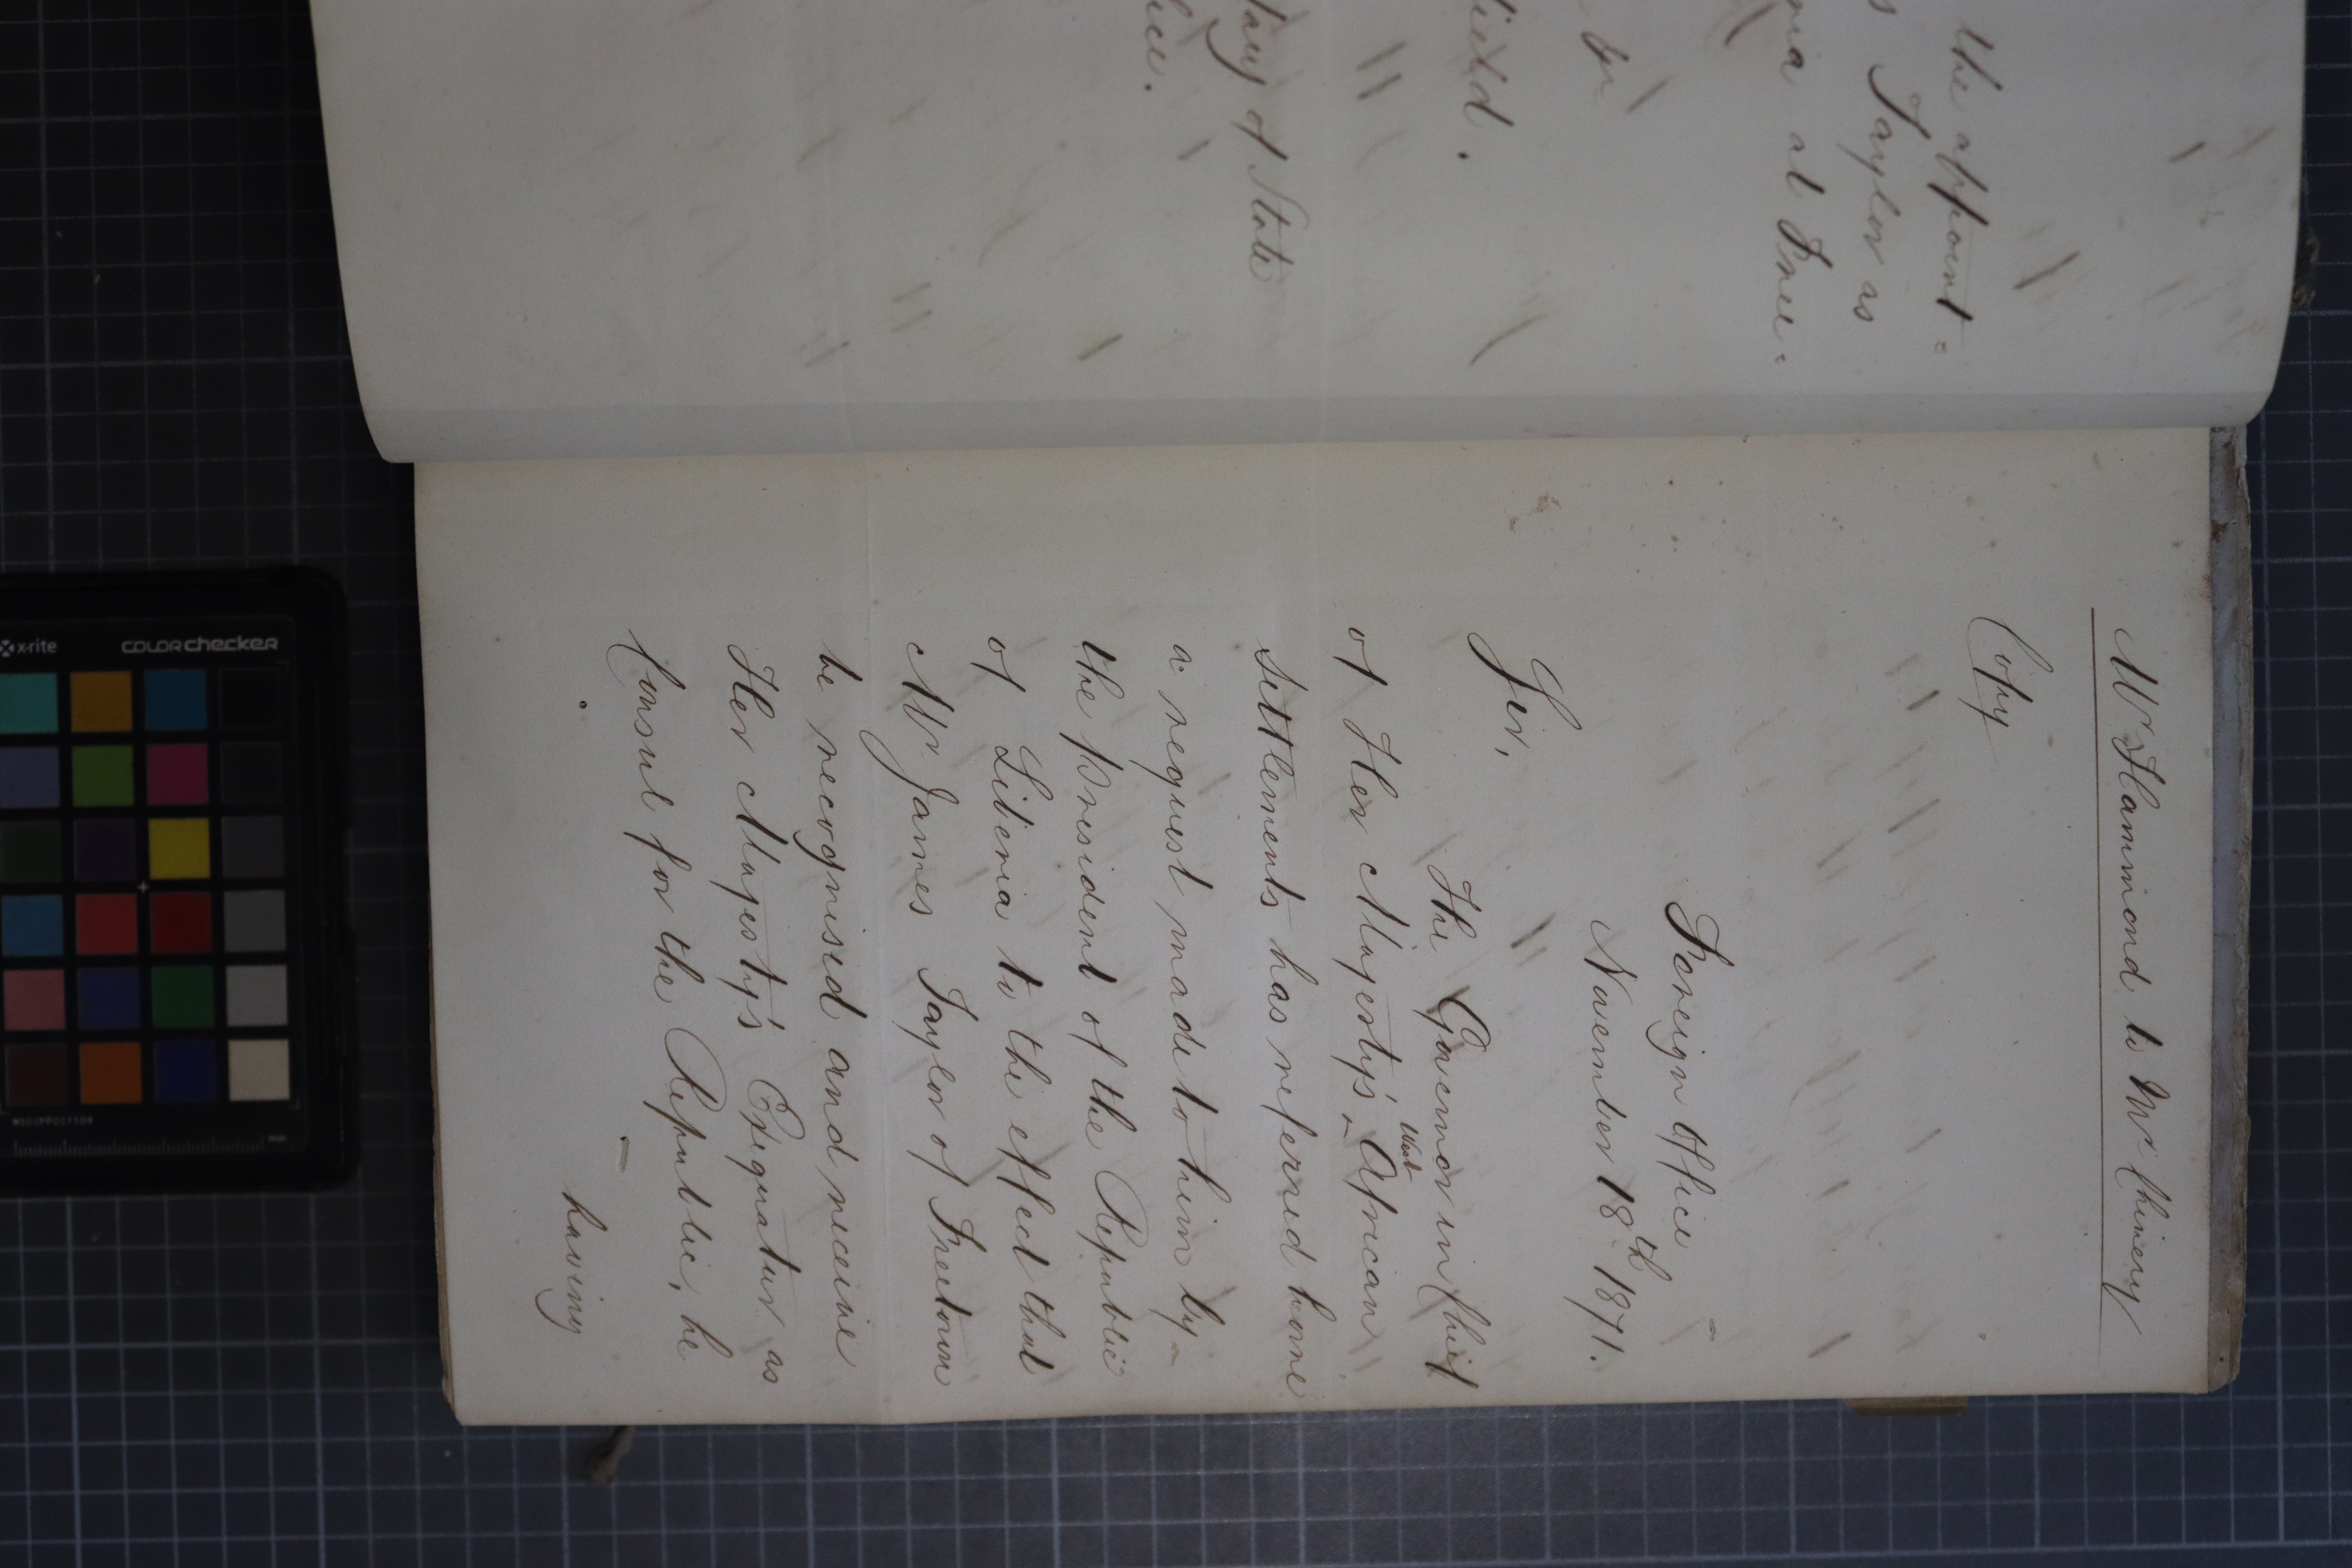 the appoint=
s Taylor as
ria at Free=
by
field.
tary of State
fice.
Mr Hammond to Mr Chinery
Copy
Foreign Office
November 18th 1871.
Sir,
The Governor in Chief
of Her Majesty's West African
Settlements has referred home
a request made to him by
the President of the Republic
of Liberia to the effect that
Mr James Taylor of Freetown
be recognised and receive
Her Majesty's Exequatur as
Consul for the Republic, he
having
x-rite colorchecker
MSCCPPCC1109